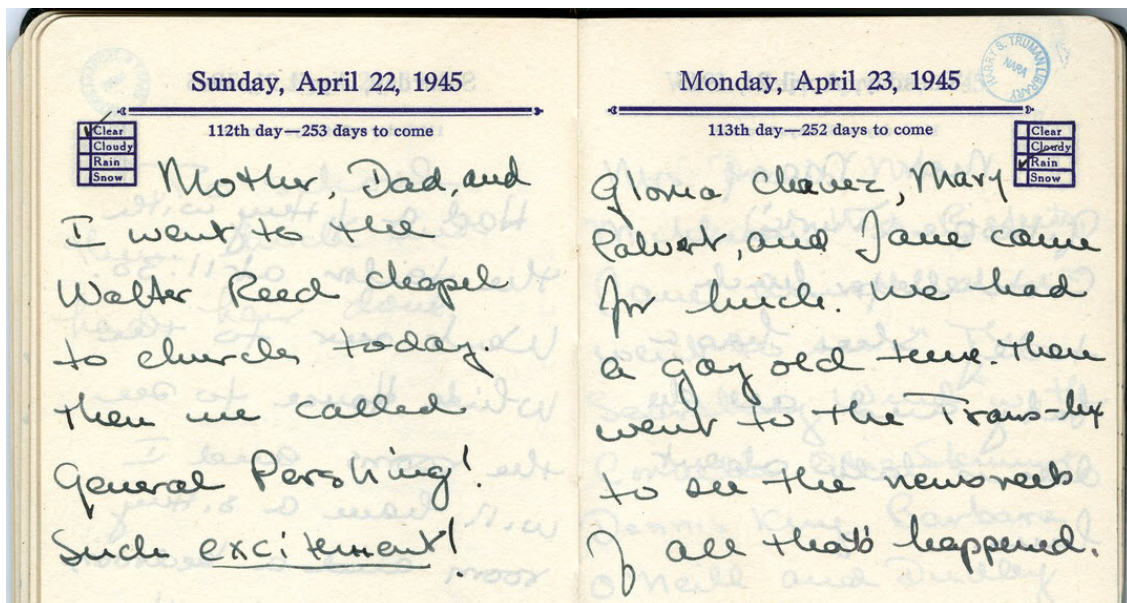 Sunday, April 22, 1945
112th day—253 days to come
Clear
Cloudy
Rain
Snow
Mother, Dad, and
I went to the
Walter Reed chapel
to church today.
Then we called
General Pershing!
Such excitement!
Monday, April 23, 1945
HARRY S. TRUMAN LIBRARY
NARA
113th day—252 days to come
Clear
Cloudy
Rain
Snow
Gloria, Chavez, Mary
Calvert, and Jane came
for lunch. We had
a gay old time. Then
went to the Trans-lux
to see the newsreels
of all that's happened.